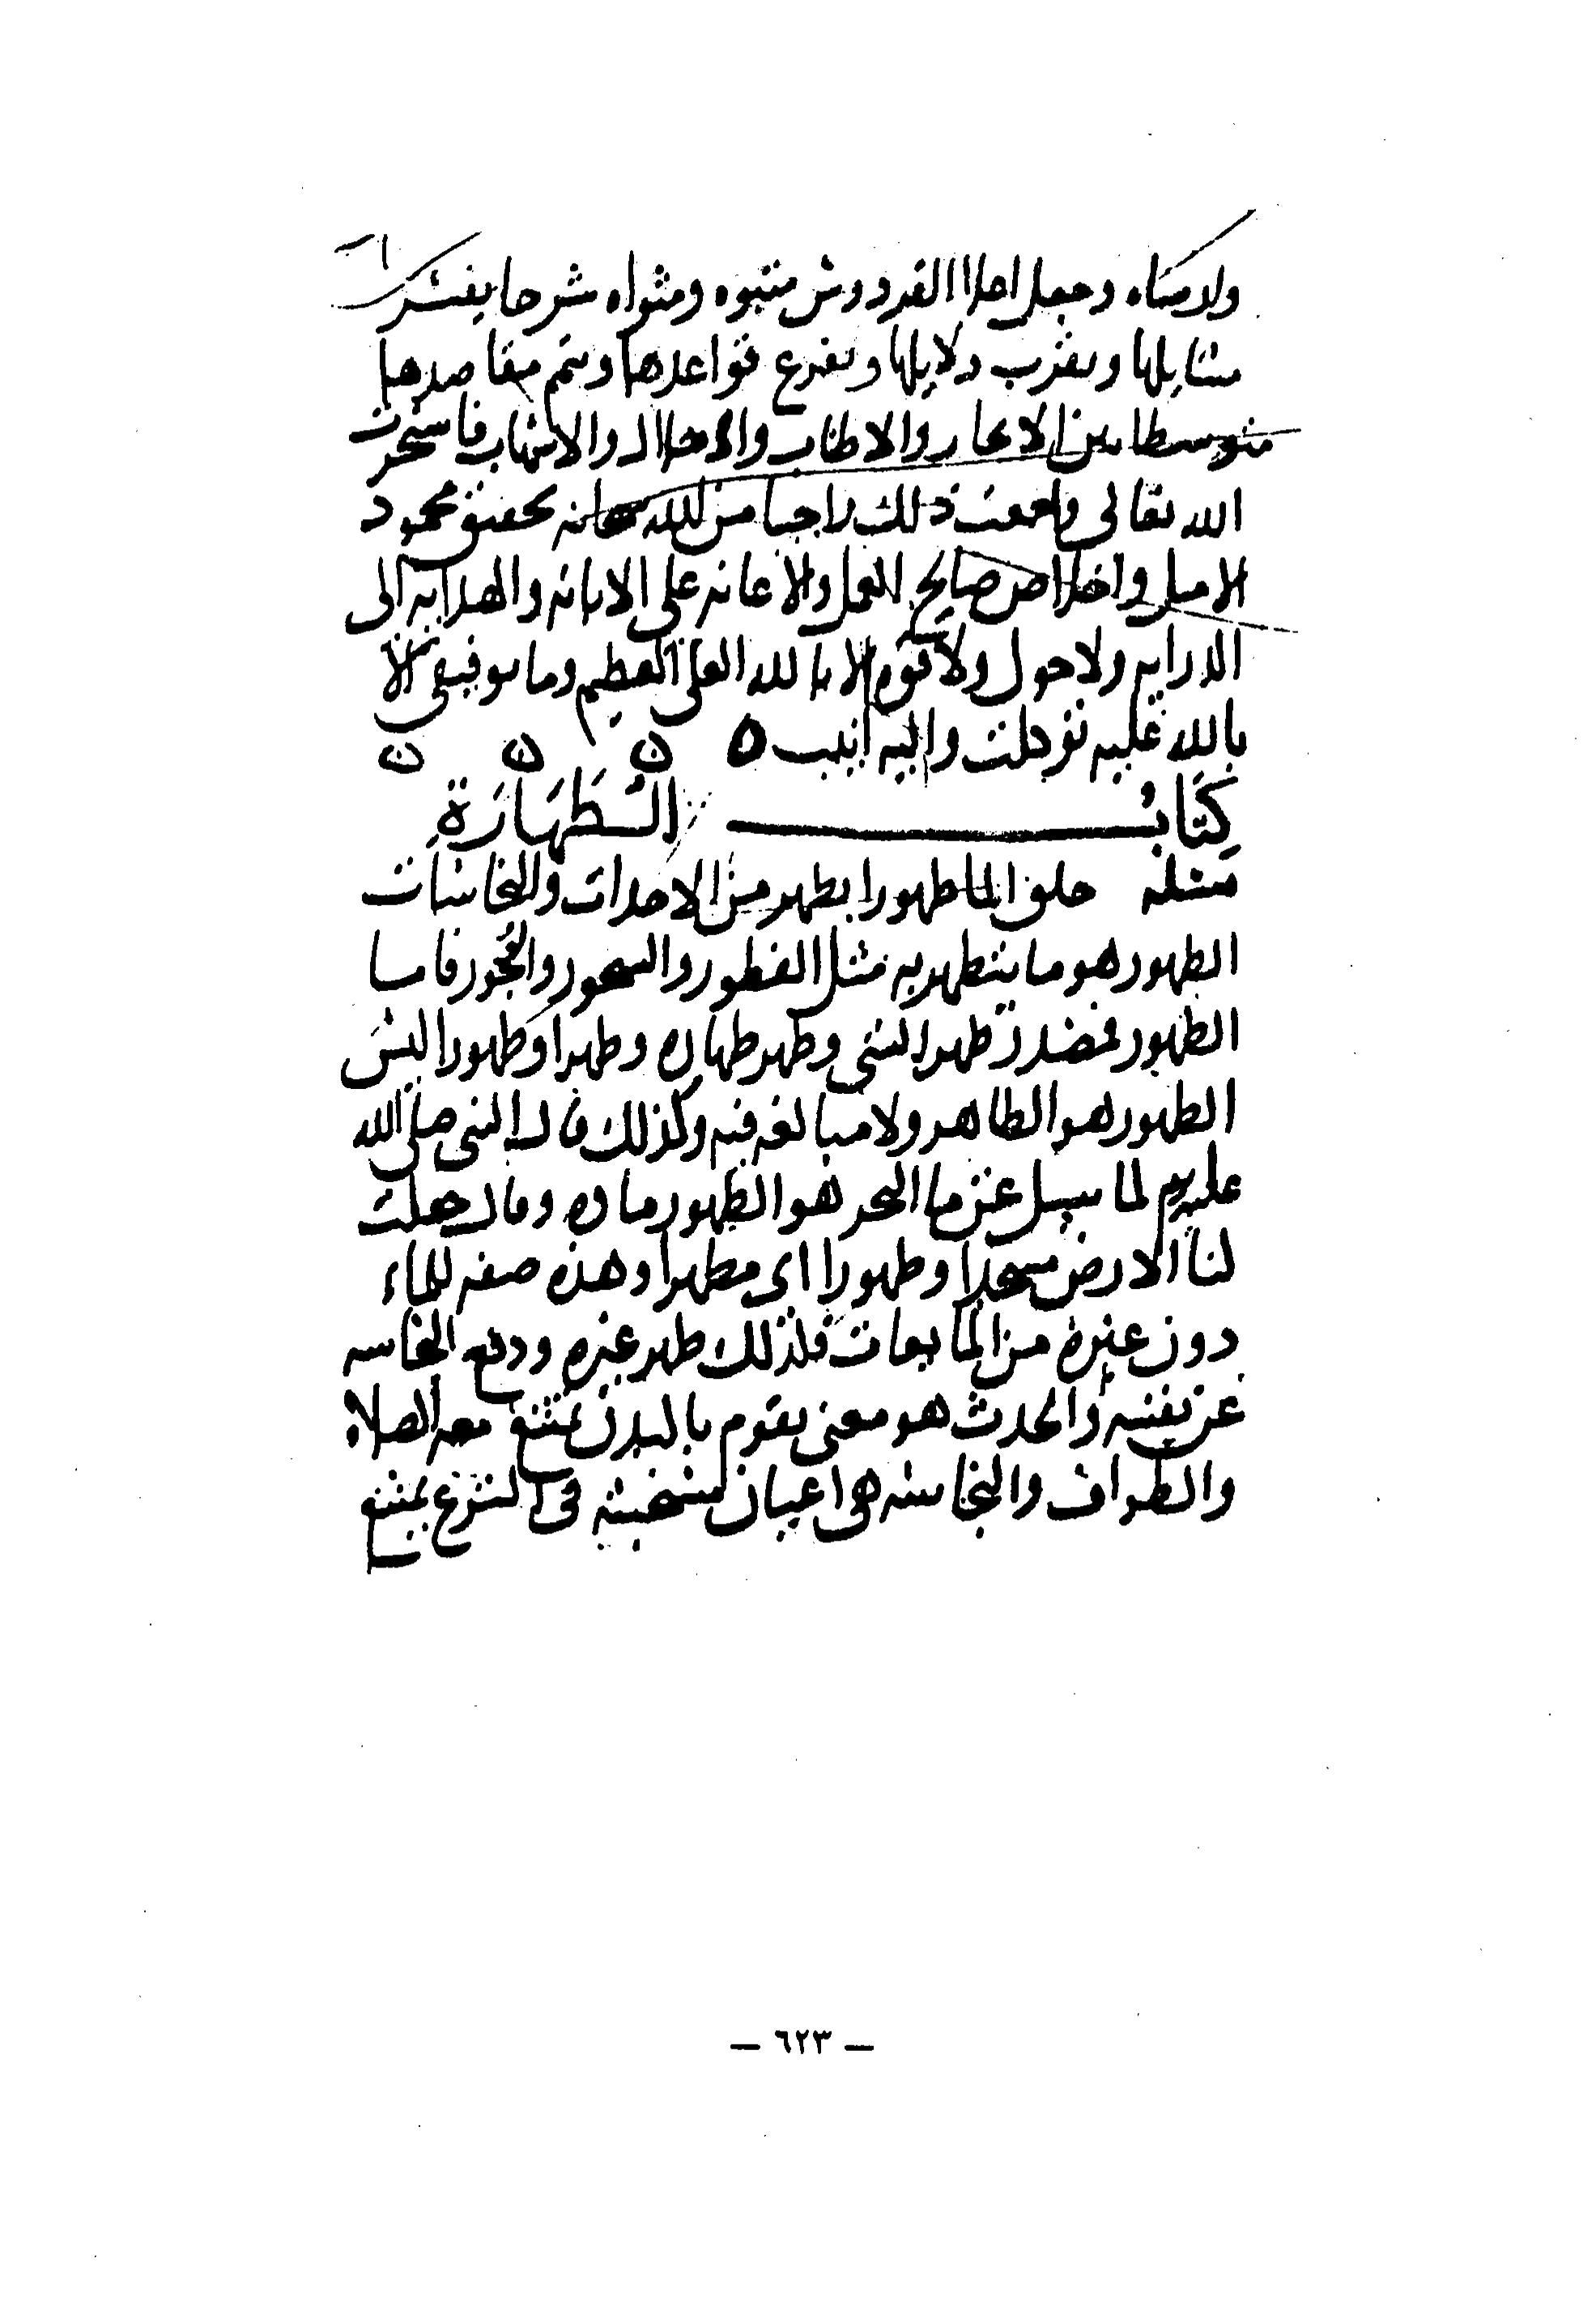 ولارضاه وجعل اعلا الفردوس متبوه ومثواه شرحا يفسر
مسايلها ويقرب دلايلها ويفرع قواعدها ويتم مقاصدها
متوسطا بين الايجاز والاطناب والاخلال والاسهاب فاستخرت
الله تعالى وجمعت ذلك راجيا من الله سبحانه تحقيق محمود
الامل واخلاص صالح العمل والاعانه على الابانه والهدايه الى
الدرايه ولا حول ولا قوه الا بالله العلى العظيم وما توفيقى الا
بالله عليه توكلت واليه انيب ٥ ٥ ٥ ٥
كِتَابُ الطَّهَارَةِ
مسئله خلق الما طهورا يطهر من الاحداث والنجاسات
الطهور هو ما يتطهر به مثل الفطور والسحور والبخور فاما
الطهور فمصدر طهر الشى وطهر طهاره وطهرا وطهورا ليس
الطهور هو الطاهر ولا مبالغه فيه وكذلك قال النبى صلى الله
عليه لما سيل عن ما البحر هو الطهور ماوه وقال جعلت
لنا الارض مسجدا وطهورا اى مطهرا وهذه صفه للماء
دون غيره من المايعات فلذلك طهر غيره ودفع النجاسه
عن نفسه والحدث هو معنى يقوم بالبدن تمتنع معه الصلاه
والطواف والنجاسه هى اعيان مستخبثه فى الشرع يمتنع
— ٦٢٣ —